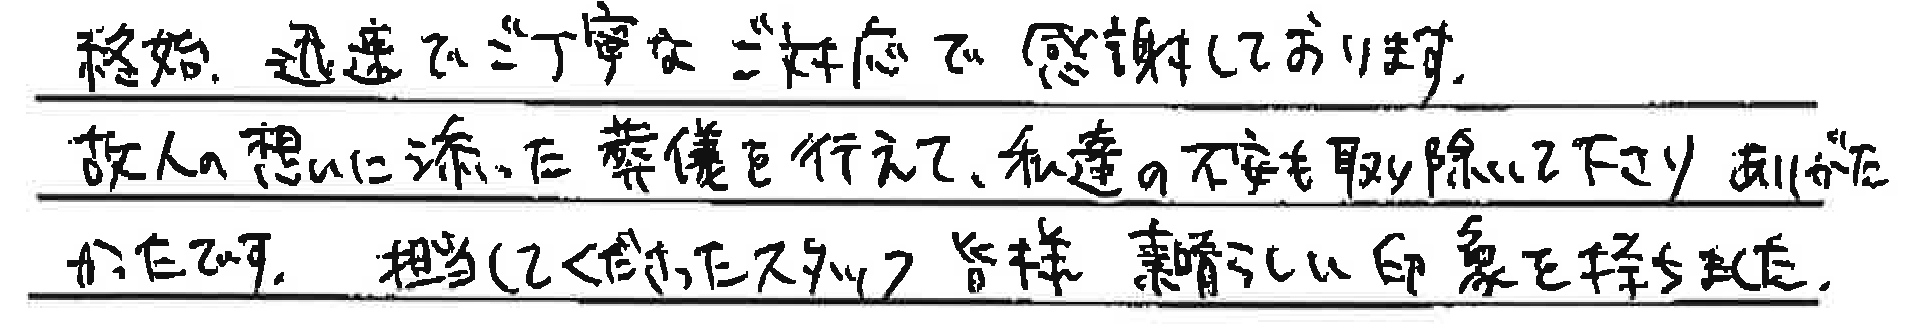 終始、迅速でご丁寧なご対応で感謝しております。
故人の想いに添った葬儀を行えて、私達の不安も取り除いて下さりありがた
かったです。 担当してくださったスタッフ皆様 素晴らしい印象を持ちました。